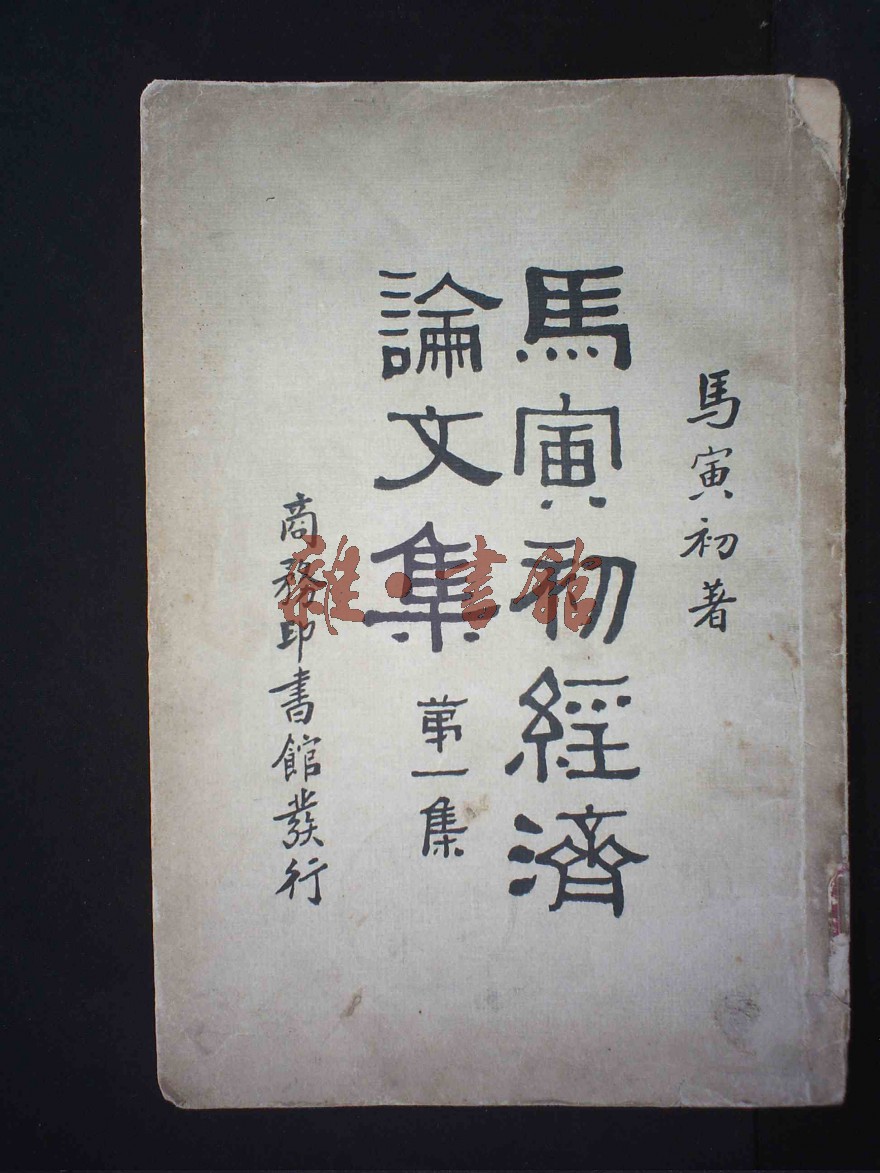 馬寅初著
馬寅初經濟
論文集
第一集
商務印書館發行
雜·書館